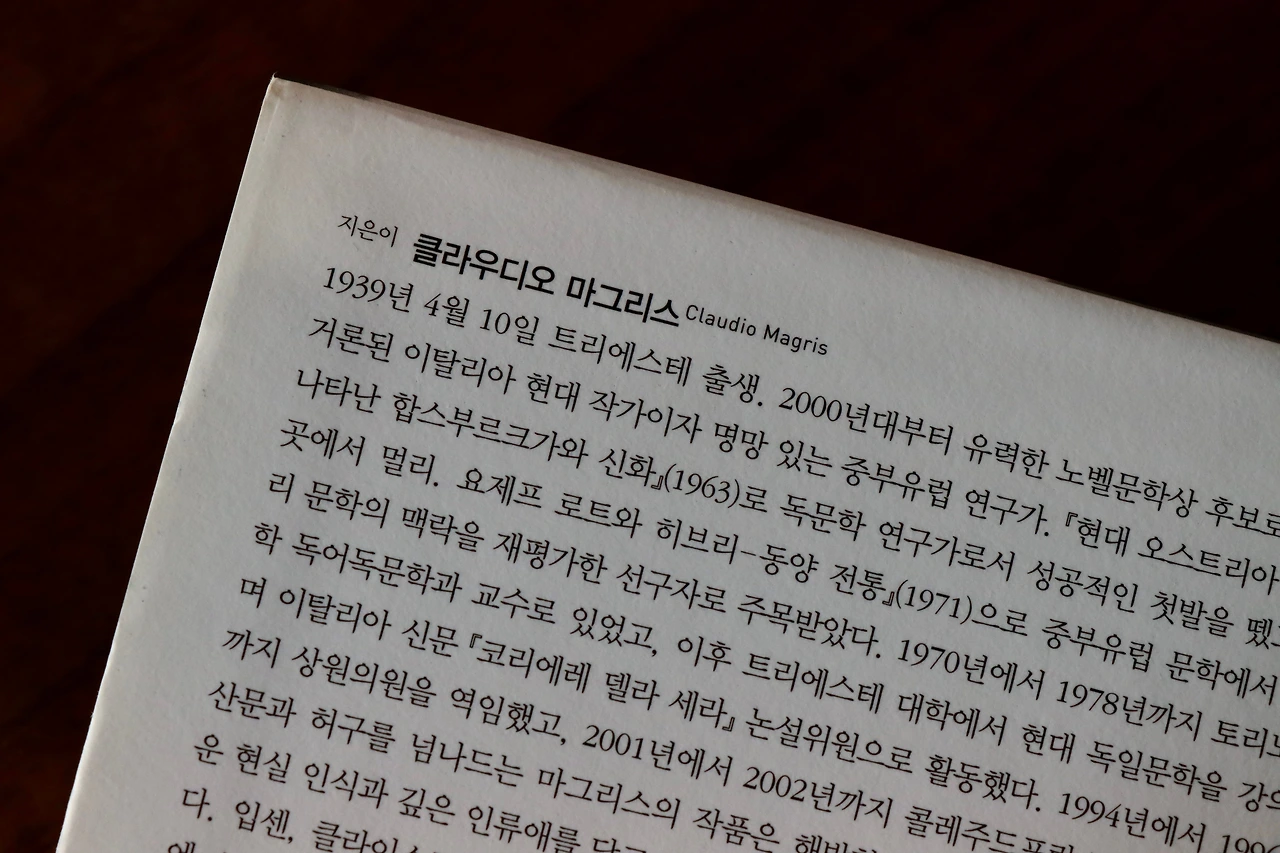 지은이 클라우디오 마그리스 Claudio Magris
1939년 4월 10일 트리에스테 출생. 2000년대부터 유력한 노벨문학상 후보로
거론된 이탈리아 현대 작가이자 명망 있는 중부유럽 연구가. 『현대 오스트리아
나타난 합스부르크가와 신화』(1963)로 독문학 연구가로서 성공적인 첫발을 뗐
곳에서 멀리. 요제프 로트와 히브리-동양 전통』(1971)으로 중부유럽 문학에서
리 문학의 맥락을 재평가한 선구자로 주목받았다. 1970년에서 1978년까지 토리노
학 독어독문학과 교수로 있었고, 이후 트리에스테 대학에서 현대 독일문학을 강의
며 이탈리아 신문 『코리에레 델라 세라』 논설위원으로 활동했다. 1994년에서 1996
까지 상원의원을 역임했고, 2001년에서 2002년까지 콜레주드프랑
산문과 허구를 넘나드는 마그리스의 작품은
운 현실 인식과 깊은 인류애를
다. 입센,